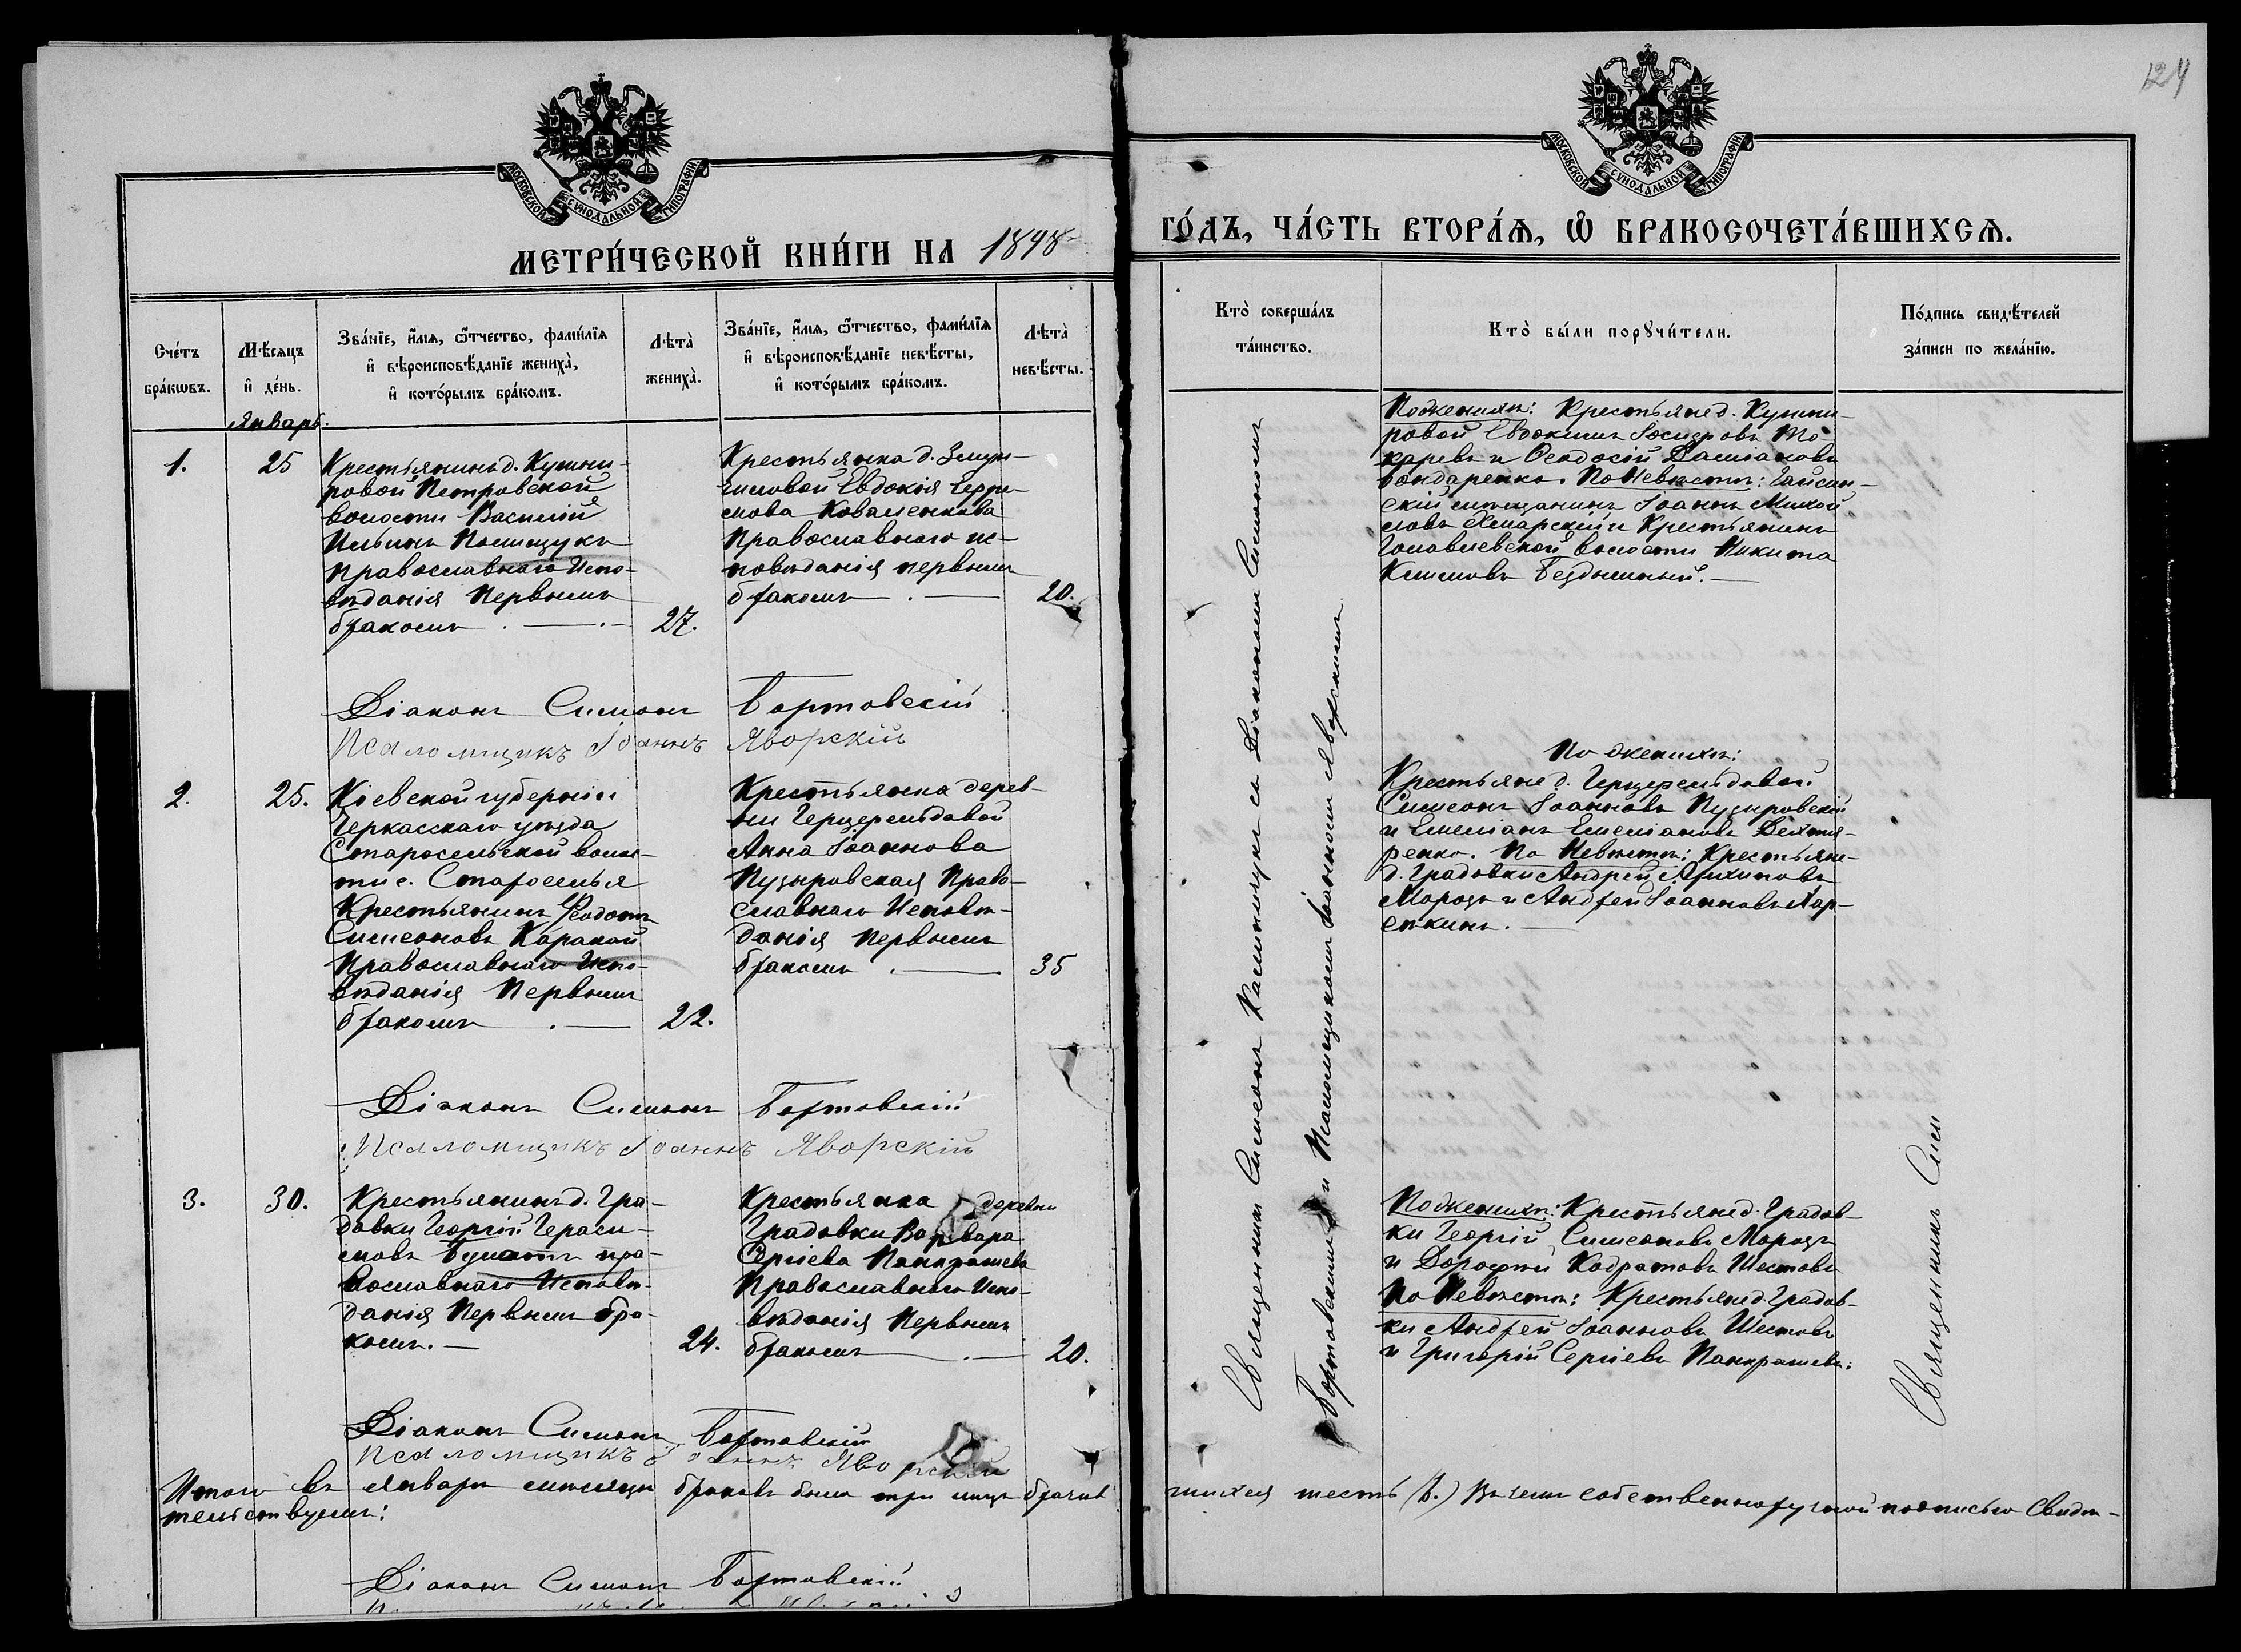 124
МОСКОВСКОЙ СѴНОДАЛЬНОЙ ТИПОГРАФІИ
МОСКОВСКОЙ СѴНОДАЛЬНОЙ ТИПОГРАФІИ
МЕТРИ́ЧЕСКОЙ КНИ́ГИ НА 1898
ГО́ДЪ, ЧА́СТЬ ВТОРА́Ѧ, Ѽ БРАКОСОЧЕТА́ВШИХСѦ.
Сче́тъ бра́кѡвъ.
Мѣ́сѧцъ и де́нь.
Зва́нїе, и́мѧ, ѻ҆́тчество, фами́лїѧ и вѣроисповѣ́данїе жениха̀, и кото́рымъ бра́комъ.
Лѣта̀ жениха̀.
Зва́нїе, и́мѧ, ѻ҆́тчество, фами́лїѧ и вѣроисповѣ́данїе невѣ́сты, и кото́рымъ бра́комъ.
Лѣта̀ невѣ́сты.
Кто̀ соверша́лъ та́инство.
Кто̀ бы́ли порꙋчи́тели.
По́дпись свидѣ́телей за́писи по жела́нїю.
Январь.
1.
25
Крестьянинъ д. Кушни-
ровой Петровской
волости Василій
Ильинъ Полищукъ
Православнаго Испо-
вѣданія Первымъ
бракомъ
27.
Крестьянка д.
Евдокія
Коваленкова
Православнаго ис-
повѣданія первымъ
бракомъ
20.
По женихѣ: Крестьяне д. Кушни-
ровой Евдокимъ То-
каревъ и Ѳеодосій Даміановъ
Бондаренко. По Невѣстѣ: Гайсин-
скій мѣщанинъ Іоаннъ Михай
ловъ и Крестьянинъ
волости Никита
Климовъ
Діаконъ Симонъ Бортовскій
Псаломщикъ Іоаннъ Яворскій
2.
25.
Кіевской губерніи
Черкасскаго уѣзда
Старосельской волос-
ти с. Староселья
Крестьянинъ Ѳеодотъ
Симеоновъ Каракай
Православнаго Испо-
вѣданія Первымъ
бракомъ
22.
Крестьянка дерев-
ни Герцерсльдовой
Анна Іоаннова
Пузыровская Право-
славнаго Исповѣ-
данія Первымъ
бракомъ
35
По женихѣ:
Крестьяне д.
Симеонъ Іоанновъ Пузыровскій
и Емеліанъ Емеліановъ Дехтя-
ренко. По Невѣстѣ: Крестьяне
д. Градовки Андрей Архиповъ
Морозъ и Андрей Іоанновъ
Діаконъ Симонъ Бортовскій
Псаломщикъ Іоаннъ Яворскій
3.
30.
Крестьянинъ д. Гра-
довки Георгій Гераси-
мовъ Булатъ пра-
вославнаго Исповѣ-
данія Первымъ бра-
комъ.
24.
Крестьянка деревни
Градовки Варвара
Сергіева Панкратьева
Православнаго Испо-
вѣданія Первымъ
бракомъ
20.
По женихѣ: Крестьяне д. Градов-
ки Георгій Симеоновъ Морозъ
и Дорофей Кодратовъ Шестовъ
По Невѣстѣ: Крестьяне д. Градов-
ки Андрей Іоанновъ Шестовъ
и Григорій Сергіевъ Панкратьевъ.
Священникъ Симеонъ съ Діакономъ Симономъ
Бортовскимъ и Псаломщикомъ Іоанномъ Яворскимъ
Священникъ Сим
Діаконъ Симонъ Бортовскій
Псаломщикъ Іоаннъ Яворскій
Итого въ Январѣ мѣсяцѣ браковъ было три лицъ брачив
шихся шесть (6.) Въ чемъ собственноручной подписью Свидѣ-
тельствуемъ:
Діаконъ Симонъ Бортовскій